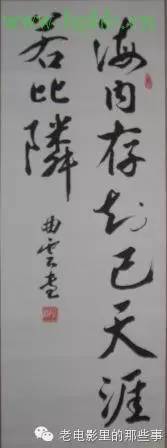 海内存知己天涯
若比隣
曲云書
老电影里的那些事